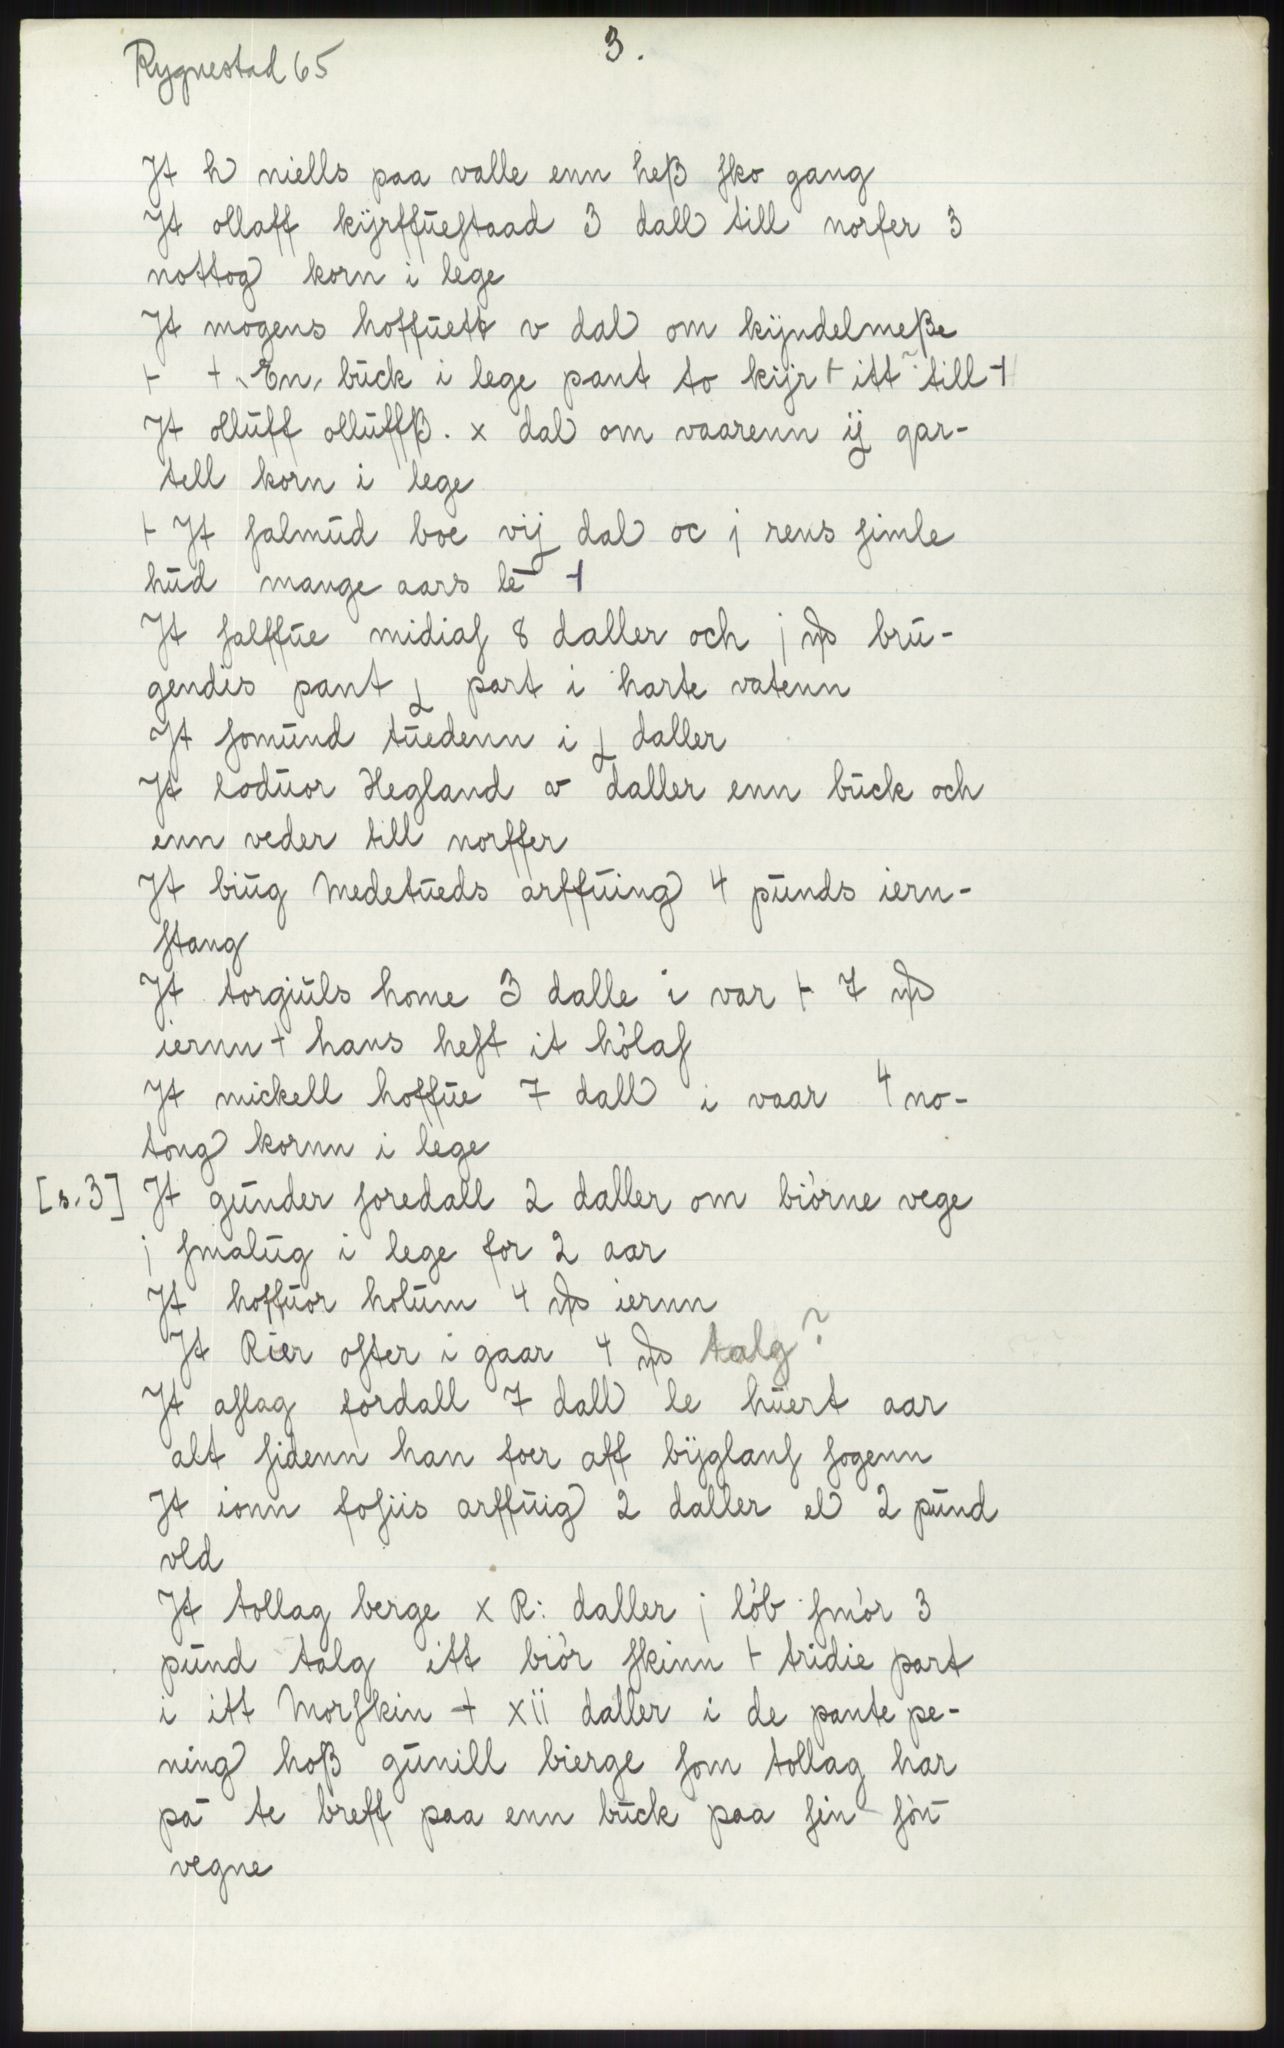 Rygnestad 65
3.
Jt h niells paa valle enn heß sko gang
Jt ollaff kijrffuestaad 3 dall till norfer 3
nottog korn i lege
Jt mogens hoffuett v dal om kijndelmeße
+ + En buck i lege pant to kijr + itt till +
Jt olluff olluffß. x dal om vaarenn ij qar-
tell korn i lege
+ Jt salmud boe vij dal oc j rens simle
hud mange aars le +
Jt salffue midias 8 daller och j bru-
gendis pant part i harte vatenn
Jt somund tuedenn i daller
Jt loduor Hegland v daller enn buck och
enn veder till norffer
Jt biug Medetueds arffuing 4 punds iern-
stang
Jt torgiuls home 3 dalle i var + 7
iernn + hans heft it hölas
Jt mickell hoffue 7 dall i vaar 4 no-
tong kornn i lege
[s. 3] Jt gunder foredall 2 daller om biörne vege
j smalug i lege for 2 aar
Jt hoffuor holum 4 iernn
Jt Rier ofter i gaar 4 talg?
Jt aslag fordall 7 dall le huert aar
alt sidenn han foer aff bijglans sogenn
Jt ionn fosiis arffuig 2 daller el 2 pund
vld
Jt tollag berge x R: daller j löb smör 3
pund talg itt biör skinn + tridie part
i itt Morskin + xii daller i de pante pe-
ning hoß gunill bierge som tollag har
pa te breff paa enn buck paa sin sön
vegne